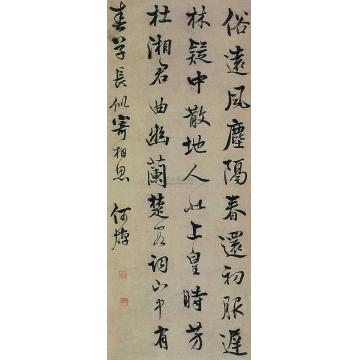 俗遠風塵隔春還初服遲
林疑中散地人似上皇時芳
杜湘君曲幽蘭楚客詞山中有
春草長似寄相思 何焯